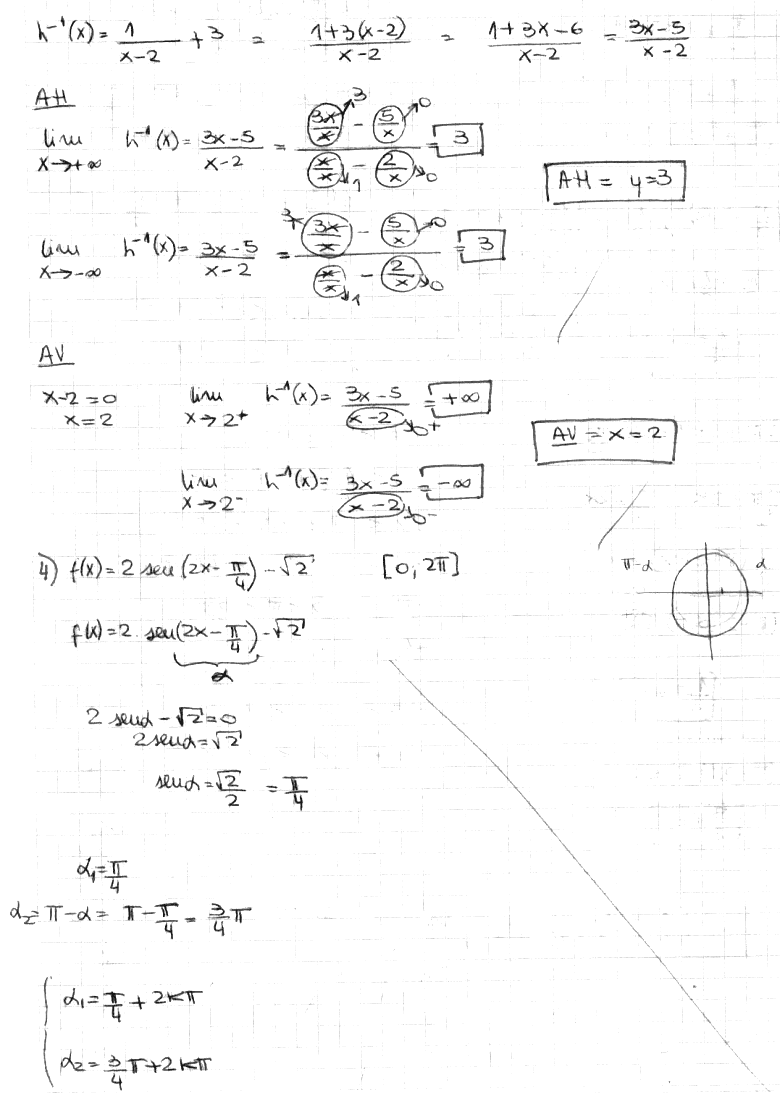 h⁻¹(x) = 1/(x-2) + 3 = (1+3(x-2))/(x-2) = (1+3x-6)/(x-2) = (3x-5)/(x-2)
AH
lim x→+∞ h⁻¹(x) = (3x-5)/(x-2) = (3x/x →3 - 5/x →0)/(x/x →1 - 2/x →0) = 3
AH = y=3
lim x→-∞ h⁻¹(x) = (3x-5)/(x-2) = (3x/x →3 - 5/x →0)/(x/x →1 - 2/x →0) = 3
AV
x-2=0 lim x→2⁺ h⁻¹(x) = (3x-5)/(x-2 →0⁺) = +∞
x=2
AV = x=2
lim x→2⁻ h⁻¹(x) = (3x-5)/(x-2 →0⁻) = -∞
4) f(x) = 2 sen (2x - π/4) - √2 [0, 2π]
π-α α
f(x) = 2 sen(2x - π/4) - √2
α
2 senα - √2 = 0
2senα = √2
senα = √2/2 = π/4
α₁ = π/4
α₂ = π-α = π - π/4 = 3/4 π
α₁ = π/4 + 2kπ
α₂ = 3/4 π + 2kπ